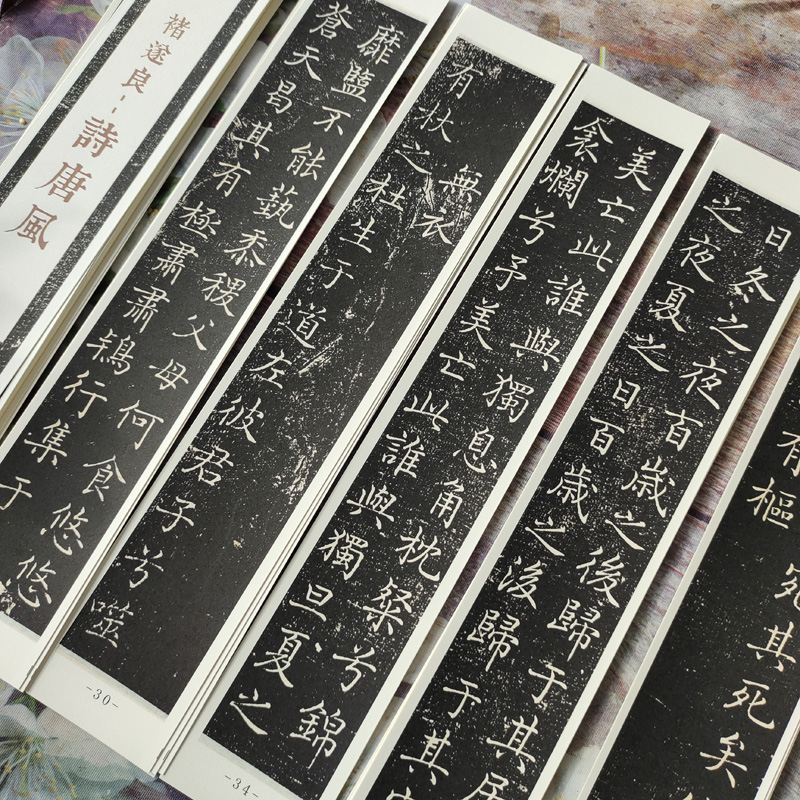 褚遂良--詩唐風
靡盬不能藝黍稷父母何食悠悠
蒼天曷其有極肅肅鴇行集于
無衣
有杕之杜生于道左彼君子兮噬
-30-
美亡此誰與獨息角枕粲兮錦
衾爛兮予美亡此誰與獨旦夏之
-34-
日冬之夜百歲之後歸于其居
之夜夏之日百歲之後歸于其
有樞 宛其死矣